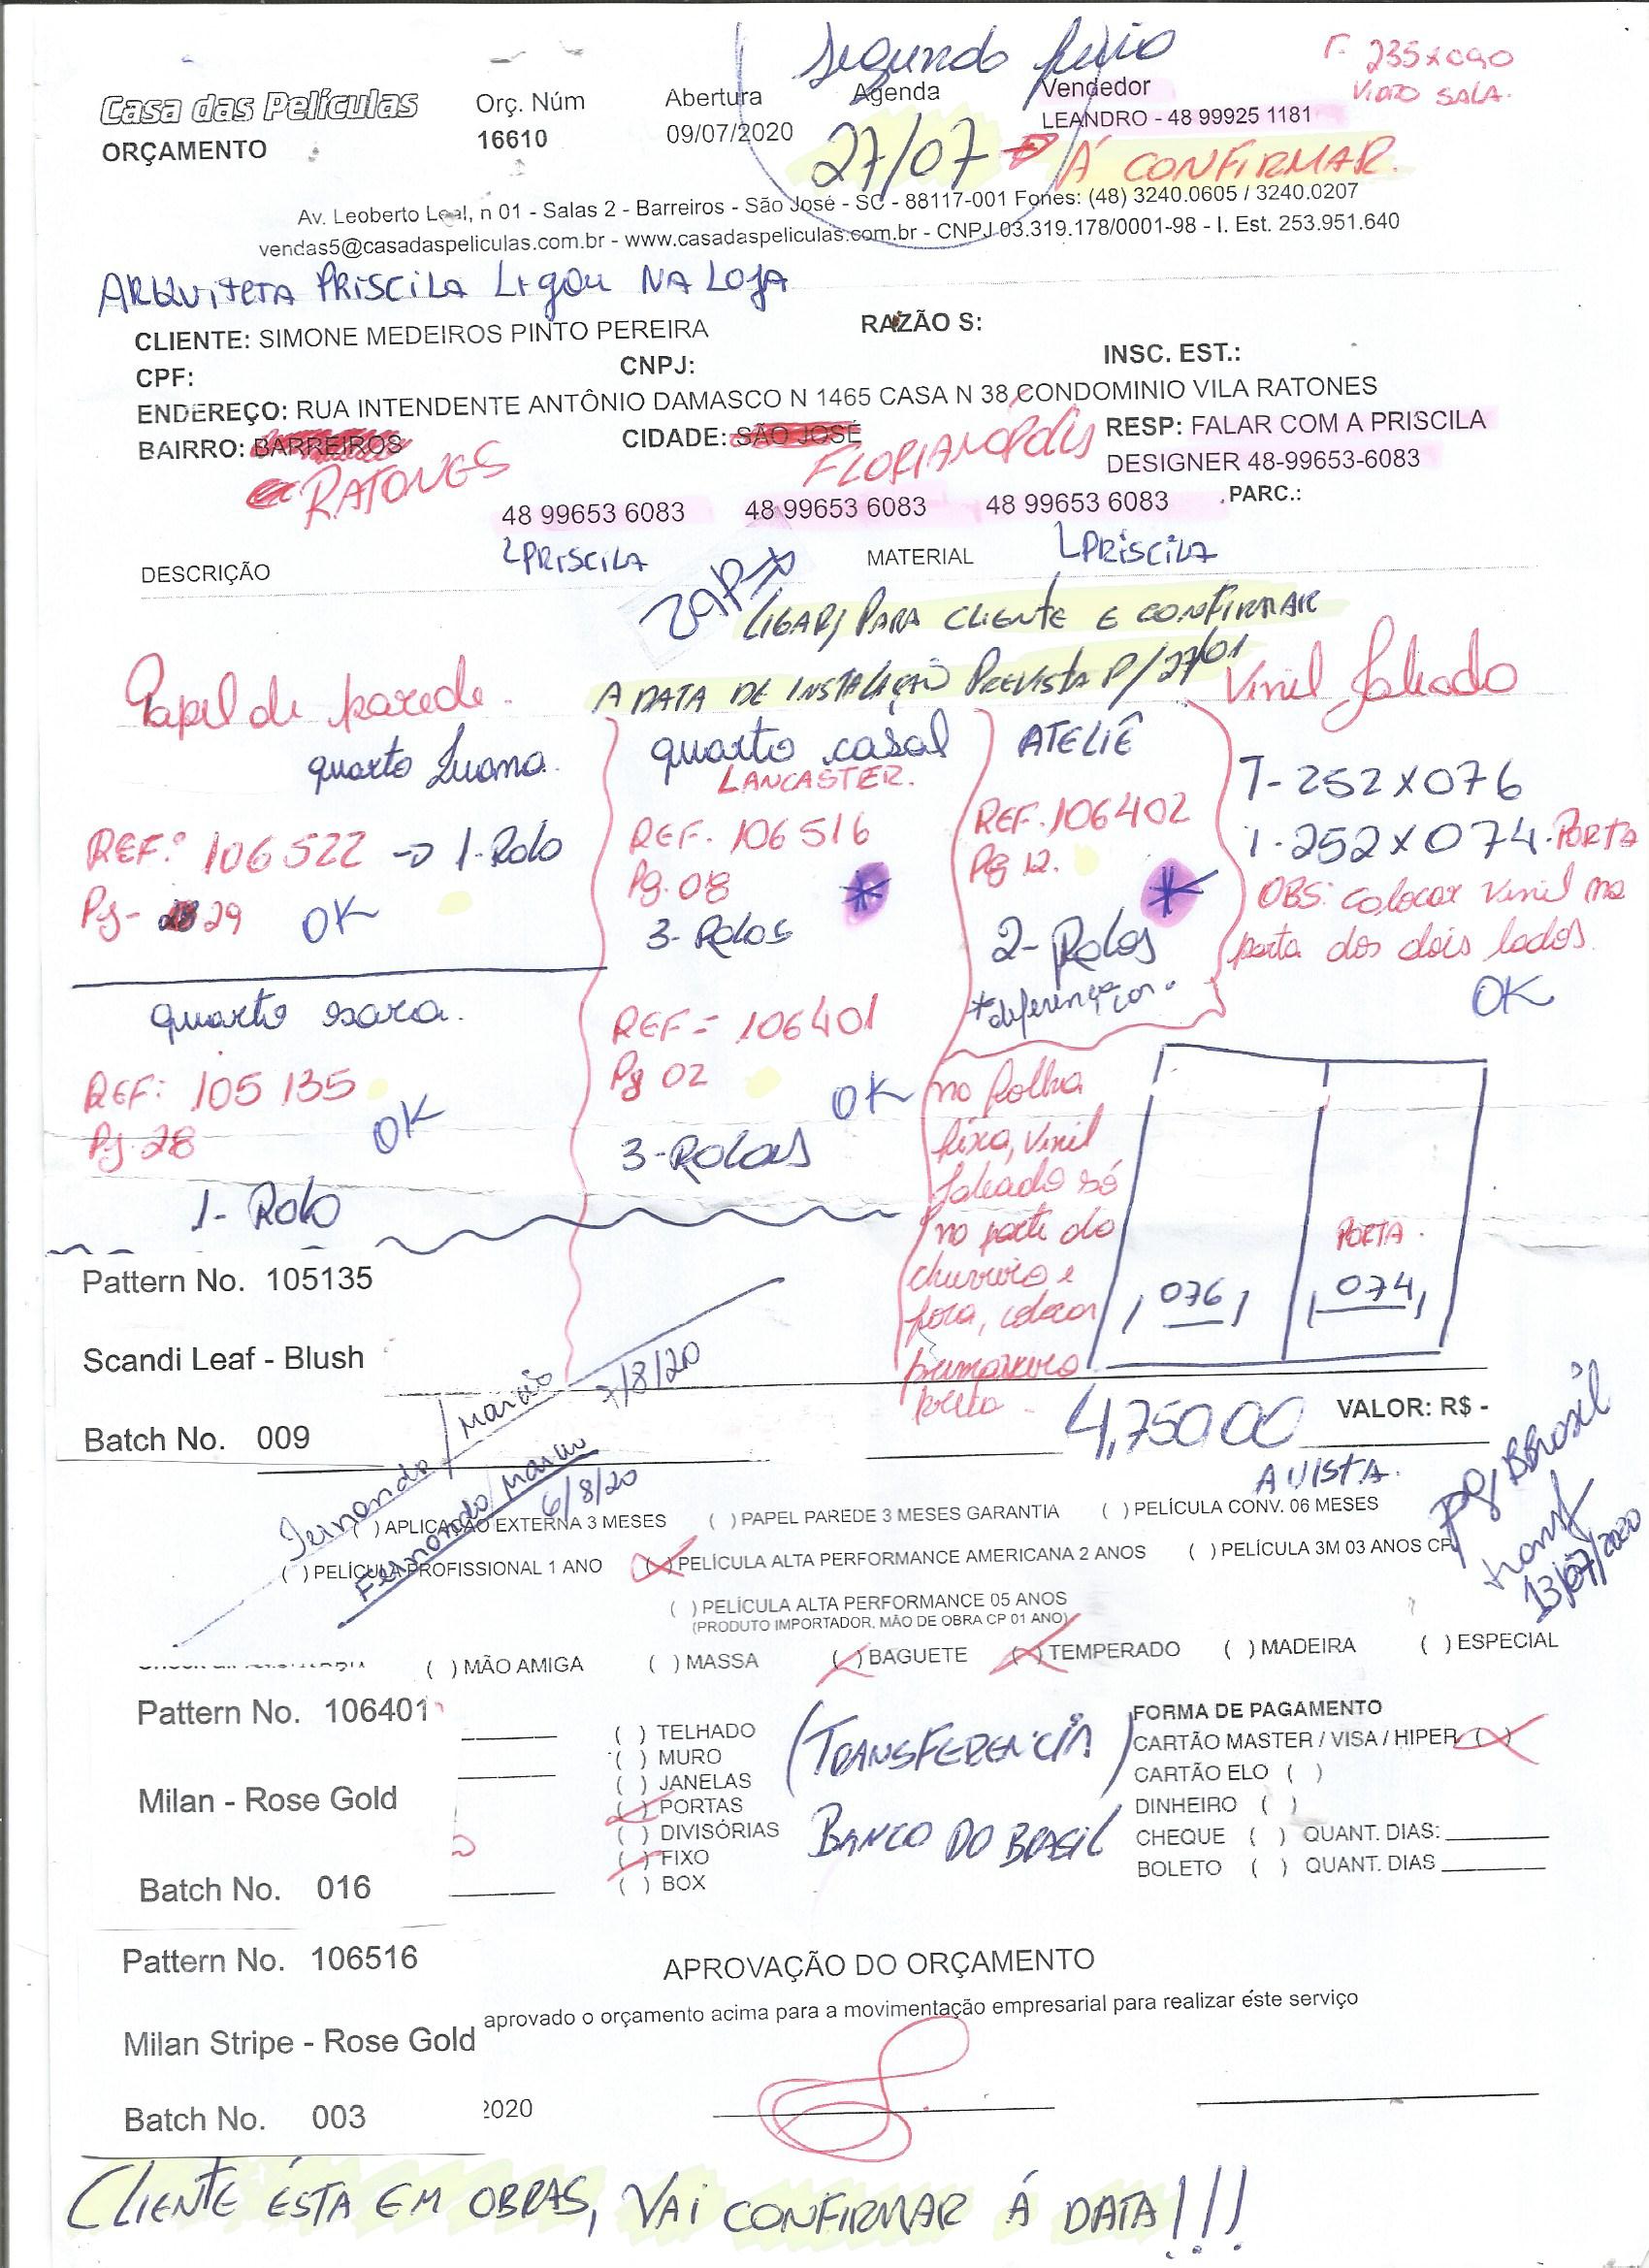 Segunda feira
1- 235x090
VIDRO SALA.
Casa das Películas
Orç. Núm
Abertura
Agenda
Vendedor
ORÇAMENTO
16610
09/07/2020
27/07 → Á CONFIRMAR.
LEANDRO - 48 99925 1181
Av. Leoberto Leal, n 01 - Salas 2 - Barreiros - São José - SC - 88117-001 Fones: (48) 3240.0605 / 3240.0207
vendas5@casadaspeliculas.com.br - www.casadaspeliculas.com.br - CNPJ 03.319.178/0001-98 - I. Est. 253.951.640
ARQUITETA PRISCILA LIGOU NA LOJA
CLIENTE: SIMONE MEDEIROS PINTO PEREIRA
RAZÃO S:
CPF:
CNPJ:
INSC. EST.:
ENDEREÇO: RUA INTENDENTE ANTÔNIO DAMASCO N 1465 CASA N 38 CONDOMINIO VILA RATONES
BAIRRO: BARREIROS
CIDADE: SÃO JOSÉ
RESP: FALAR COM A PRISCILA
RATONES
FLORIANÓPOLIS
DESIGNER 48-99653-6083
48 99653 6083 48 99653 6083 48 99653 6083 PARC.:
PRISCILA
PRISCILA
DESCRIÇÃO
MATERIAL
ZAP
LIGAR PARA CLIENTE E CONFIRMAR
A DATA DE INSTALAÇÃO PREVISTA P/27/01
Papel de parede.
Vinil Jateado
quarto Luana.
REF.: 106522 → 1-Rolo
Pg- 29 OK
quarto sara.
REF: 105135
Pg. 28
OK
1- Rolo
quarto casal
LANCASTER.
REF. 106516
Pg. 08
3- Rolos
REF= 106401
Pg 02
OK
3-Rolos
ATELIÊ
REF. 106402
Pg 12.
2- Rolos
*diferença cor.
1- 252x076
1- 252x074. PORTA
OBS: colocar vinil na
porta dos dois lados.
OK
na folha
fixa, vinil
jateado só
na parte do
chuveiro e
fora, colocar
preto.
PORTA.
076
074
Pattern No. 105135
Scandi Leaf - Blush
Batch No. 009
Fernando/Marcio 7/8/20
Fernando/Marcio 6/8/20
4.750,00 VALOR: R$ -
A VISTA.
pg BBrasil
13/07/2020
( ) APLICAÇÃO EXTERNA 3 MESES ( ) PAPEL PAREDE 3 MESES GARANTIA ( ) PELÍCULA CONV. 06 MESES
( ) PELÍCULA PROFISSIONAL 1 ANO (X) PELÍCULA ALTA PERFORMANCE AMERICANA 2 ANOS ( ) PELÍCULA 3M 03 ANOS CP
( ) PELÍCULA ALTA PERFORMANCE 05 ANOS
(PRODUTO IMPORTADOR, MÃO DE OBRA CP 01 ANO)
( ) MÃO AMIGA ( ) MASSA (X) BAGUETE (X) TEMPERADO ( ) MADEIRA ( ) ESPECIAL
Pattern No. 106401
Milan - Rose Gold
Batch No. 016
( ) TELHADO
( ) MURO
( ) JANELAS
(X) PORTAS
( ) DIVISÓRIAS
(X) FIXO
( ) BOX
(TRANSFERENCIA)
BANCO DO BRASIL
FORMA DE PAGAMENTO
CARTÃO MASTER / VISA / HIPER (X)
CARTÃO ELO ( )
DINHEIRO ( )
CHEQUE ( ) QUANT. DIAS:
BOLETO ( ) QUANT. DIAS
Pattern No. 106516
Milan Stripe - Rose Gold
Batch No. 003
APROVAÇÃO DO ORÇAMENTO
aprovado o orçamento acima para a movimentação empresarial para realizar este serviço
2020
CLIENTE ESTA EM OBRAS, VAI CONFIRMAR Á DATA!!!